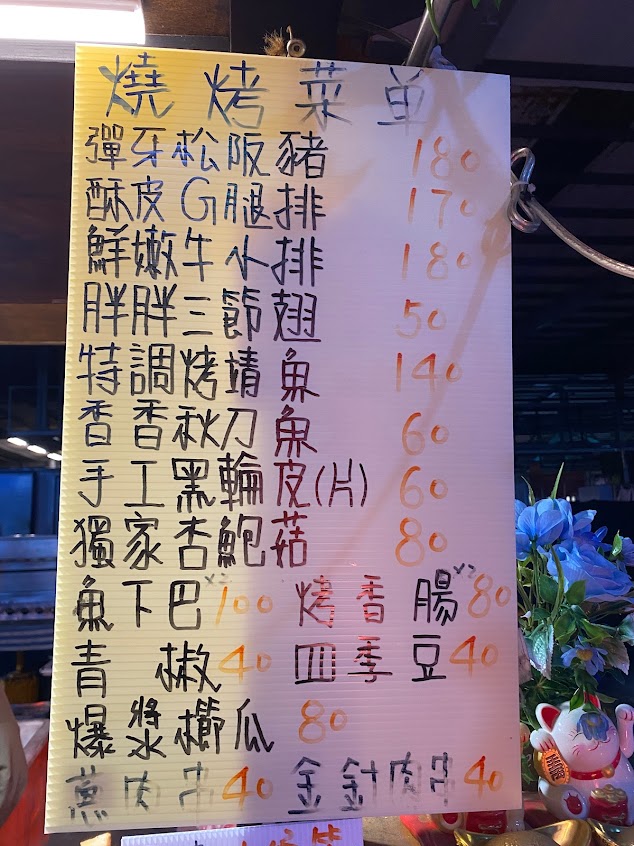 燒烤菜单
彈牙松阪豬 180
酥皮G腿排 170
鮮嫩牛小排 180
胖胖三節翅 50
特調烤靖魚 140
香香秋刀魚 60
手工黑輪皮(片) 60
獨家杏鮑菇 80
魚下巴x2 100 烤香腸x2 80
青椒 40 四季豆 40
爆漿櫛瓜 80
蔥肉串 40 金針肉串 40